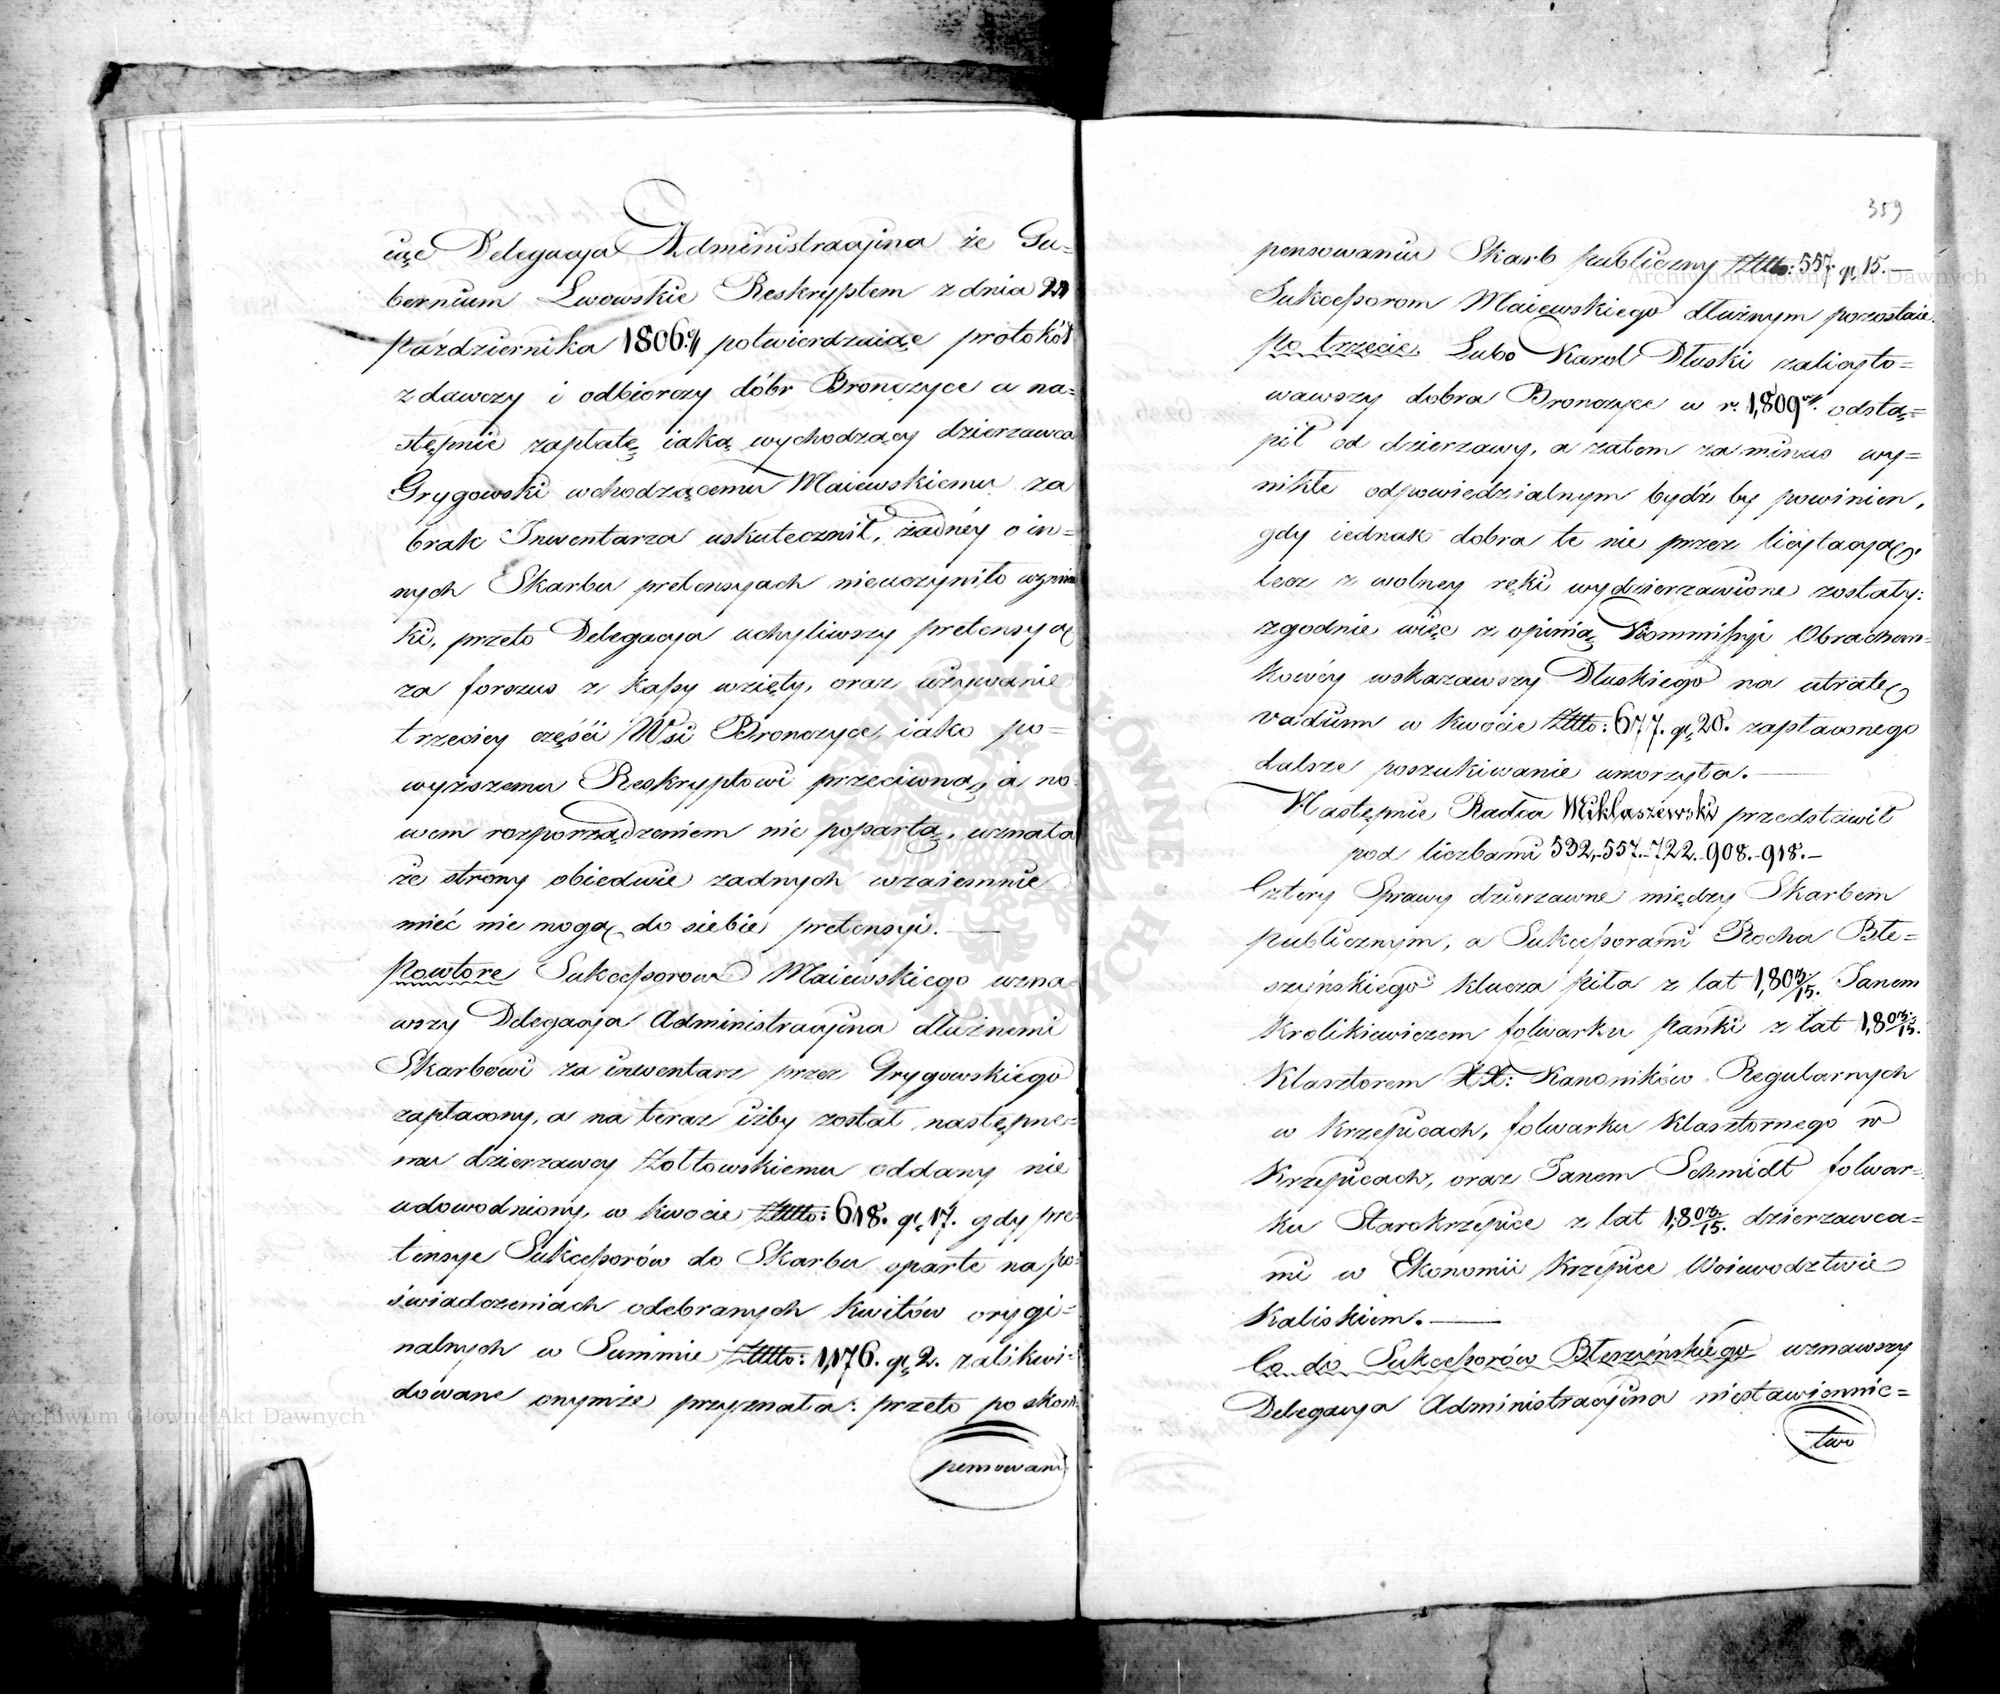 iąc Delegacya Administracyina że Gu=
bernium Lwowskie Reskryptem z dnia
Października 1806. potwierdzaiąc protokół
zdawczy i odbiorczy dóbr Bronczyce a na=
stępnie zapłatę iaką wychodzący dzierzawca
Grygowski wchodzącemu Maiewskiemu za
brak Inwentarza uskutecznił, żadnéy o in=
nych Skarbu pretensyach nieuczyniło wzmian
ki, przeto Delegacya uchyliwszy pretensyą
za forszus z kassy wzięty, oraz używanie
trzeciey częśći Wsi Bronczyce, iako po=
wyższemu Reskryptowi przeciwną, a no
wem rozporządzeniem nie popartą, uznała
że strony obiedwie zadnych wzaiemnie
mieć nie mogą do siebie pretensyi. —
Powtore Sukcessorow Maiewskiego uzna=
wszy Delegacya Administracyina dłużnemi
Skarbowi za inwentarz przez Grygowskiego
zapłacony, a na teraz iżby został następne=
mu dzierzawcy Żołtowskiemu oddany nie
udowodniony, w kwocie 618. gr 17. gdy pre=
tensye Sukcessorów do Skarbu oparte na po=
świadczeniach odebranych kwitów orygi=
nalnych w Summie 1,176. gr 2. zalikwi=
dowane onymże przyznała: przeto po skom=
pensowani
359
pensowaniu Skarb publiczny 557. gr 15. —
Sukcessorom Maiewskiego dłużnym pozostaie.
po trzecie. Lubo Karol Dłuski zalicyto=
wawszy dobra Bronczyce w r. 1,809 odstą=
pił od dzierzawy, a zatem za minus wy=
nikłe odpowiedzialnym bydź by powinien,
gdy iednak dobra te nie przez licytacyą
lecz z wolney ręki wydzierzawione zostały:
zgodnie więc z opinią Kommissyi Obrachun=
kowéy wskazawszy Dłuskiego na utratę
vadium w kwocie 677. gr 20. zapłaconego
dalsze poszukiwanie umorzyła. —
Następnie Radca Miklaszewski przedstawił
pod liczbami 532.-557.-722.-908.-918.—
Cztery Sprawy dzierzawne między Skarbem
publicznym, a Sukcessorami Rocha Błe=
szińskiego klucza Piła z lat 1,803/15. Janem
Krolikiewiczem folwarku Panki z lat 1,803/15.
Klasztorem XX: Kanoników Regularnych
w Krzepicach, folwarku Klasztornego w
Krzepicach, oraz Janem Schmidt folwar=
ku Starokrzepice z lat 1,803/15. dzierzawca=
mi w Ekonomii Krzepice Woiewodztwie
Kaliskiem. —
Co do Sukcessorów Błeszińskiego uznawszy
Delegacya Administracyina niestawiennic=
two
Archiwum Główne Akt Dawnych
Archiwum Główne Akt Dawnych
ARCHIWUM GŁÓWNE AKT DAWNYCH